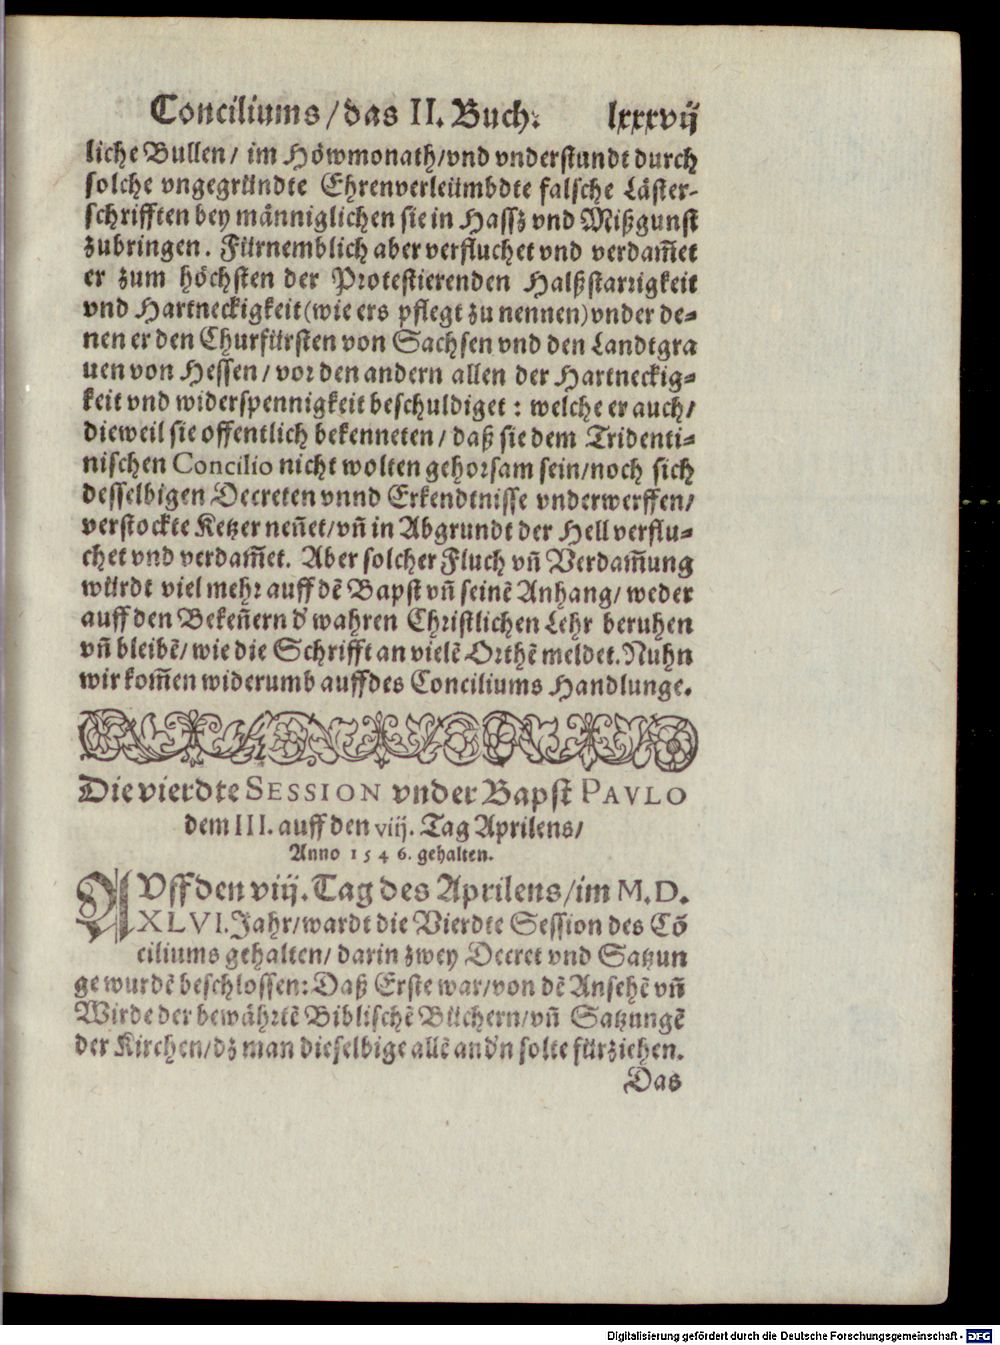 Conciliums / das II. Buch. lxxxvij
liche Bullen / im Höwmonath / vnd vnderstundt durch
solche vngegründte Ehrenverleümbdte falsche Läster-
schrifften bey männiglichen sie in Hassz vnd Mißgunst
zubringen. Fürnemblich aber verfluchet vnd verdam̃et
er zum höchsten der Protestierenden Halßstarrigkeit
vnd Hartneckigkeit (wie ers pflegt zu nennen) vnder de-
nen er den Churfürsten von Sachsen vnd den Landtgra
uen von Hessen / vor den andern allen der Hartneckig-
keit vnd widerspennigkeit beschuldiget : welche er auch /
dieweil sie offentlich bekenneten / daß sie dem Tridenti-
nischen Concilio nicht wolten gehorsam sein / noch sich
desselbigen Decreten vnnd Erkendtnisse vnderwerffen /
verstockte Ketzer neñet / vñ in Abgrundt der Hell verflu-
chet vnd verdam̃et. Aber solcher Fluch vñ Verdam̃ung
würdt viel mehr auff dẽ Bapst vñ seinẽ Anhang / weder
auff den Bekeñern d' wahren Christlichen Lehr beruhen
vñ bleibẽ / wie die Schrifft an vielẽ Orthẽ meldet. Nuhn
wir kom̃en widerumb auff des Conciliums Handlunge.
Die vierdte SESSION vnder Bapst PAVLO
dem III. auff den viij. Tag Aprilens /
Anno 1546. gehalten.
AVff den viij. Tag des Aprilens / im M.D.
XLVI. Jahr / wardt die Vierdte Session des Cõ
ciliums gehalten / darin zwey Decret vnd Satzun
ge wurdẽ beschlossen: Daß Erste war / von dẽ Ansehẽ vñ
Wirde der bewährtẽ Biblischẽ Büchern / vñ Satzungẽ
der Kirchen / dz man dieselbige allẽ and'n solte fürziehen.
Das
Digitalisierung gefördert durch die Deutsche Forschungsgemeinschaft - DFG